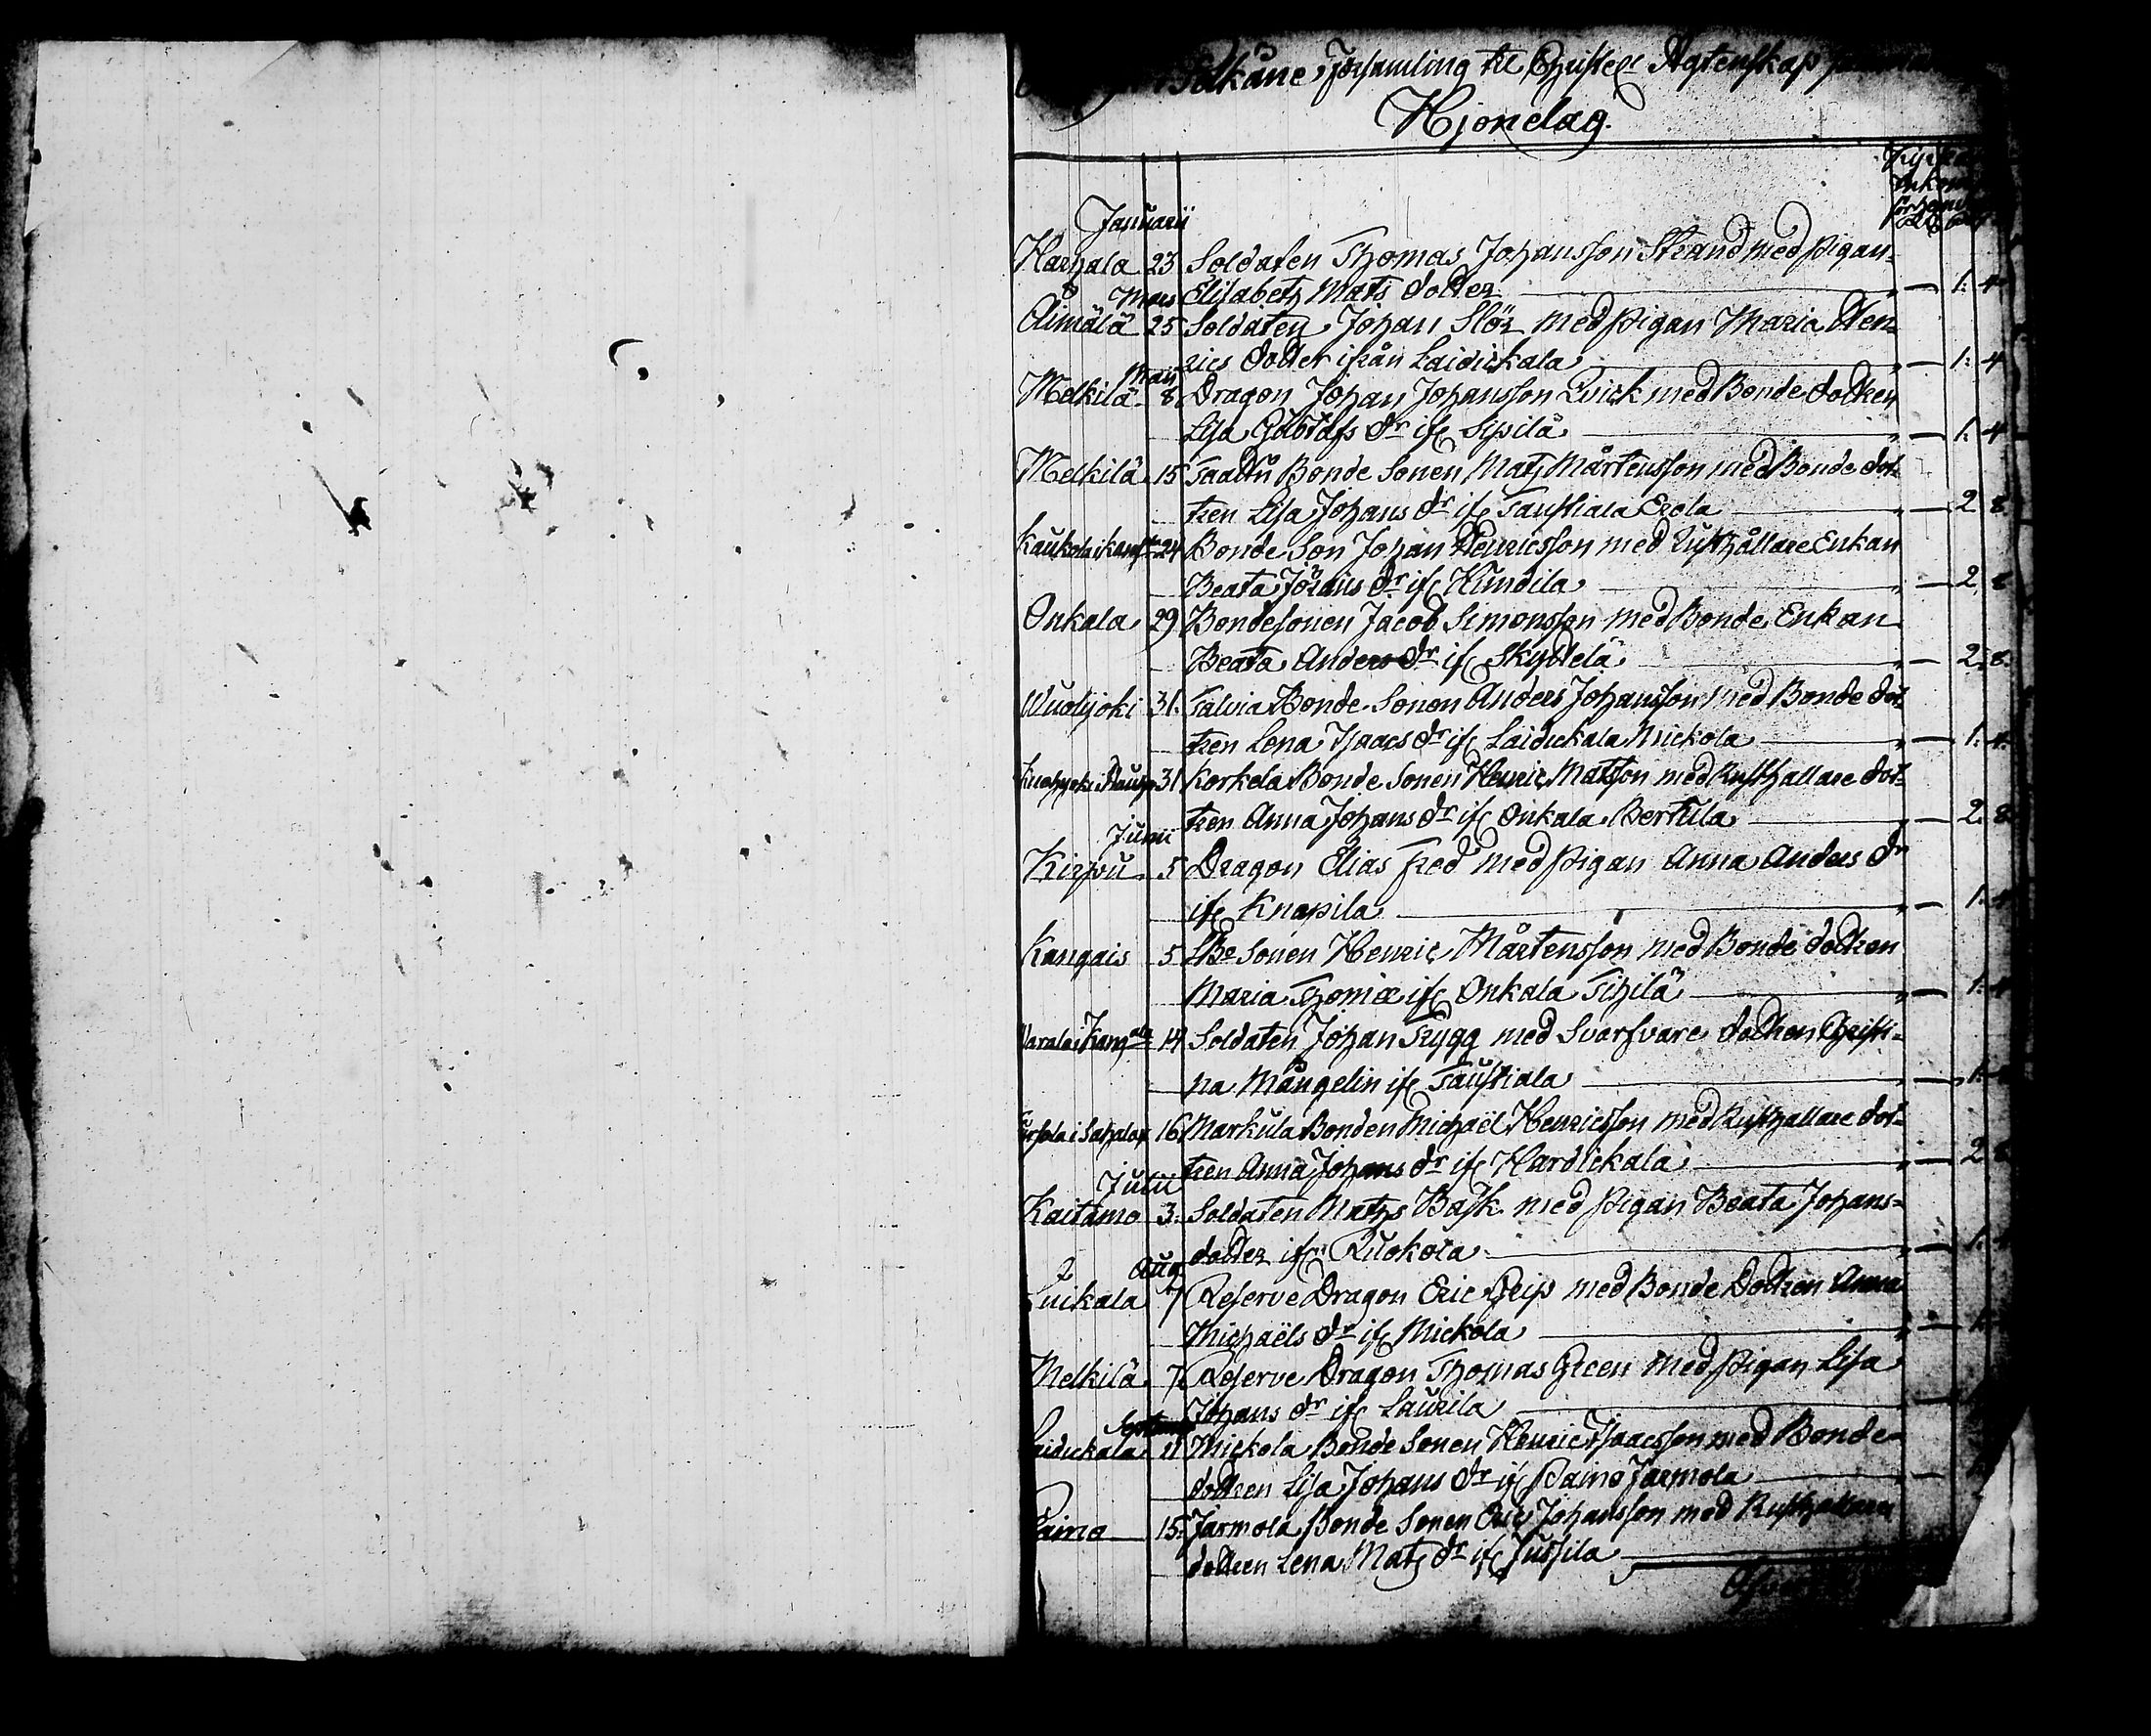 Pälkäne Församling til Christel. Ägtenskap
Hjonelag.
Januarii
Harhala 23 Soldaten Thomas Johansson Strand med Pigan
Elisabeth Mats dotter 1: 4
Mars
Äimälä 25 Soldaten Johan Slör med Pigan Maria Hen-
rics dotter ifrån Laidickala 1: 4
Maii
Melkilä 8 Dragon Johan Johansson Qvick med Bonde dottren
Lisa Gustafs dr ifr Sipilä 1: 4
Melkilä 15 Taattu Bonde Sonen Mats Mårtensson med Bonde dot-
tren Lisa Johans dr ifr Taustiala Erola 2 8
Kaukola i Kangasa 24 Bonde Son Johan Henricsson med Rusthållare Enkan
Beata Jörans dr ifr Kundila 2. 8
Onkala 29 Bondesonen Jacob Simonsson med Bonde Enkan
Beata Anders dr ifr Skyttelä 2. 8.
Wuolijoki 31. Talvia Bonde Sonen Anders Johansson med Bonde dot-
tren Lena Isaacs dr ifr Laidickala Mickola 1. 4.
31 Korkela Bonde Sonen Henric Matsson med Rusthållare dot-
tren Anna Johans dr ifr Onkala Bertula 2. 8
Junii
Kirpu 5 Dragon Elias Fred med Pigan Anna Anders dr
ifr Knapila 1. 4
Kangais 5 Sonen Henric Mårtensson med Bonde dottren
Maria Thomæ ifr Onkala Tihilä 1. 4
i Kang 14 Soldaten Johan Trygg med Svarfvare dottren Christi-
na Mångelin ifr Taustiala 1.
i Sahalax 16 Markula Bonden Michaël Henricsson med Rusthållare dot-
tren Anna Johans dr ifr Hardickala 2 8
Julii
Kaitamo 3. Soldaten Mathz Bask med Pigan Beata Johans-
dotter ifrn Ruokola 1. 4
Aug
Luikala 7 Reserve Dragon Eric Grip med Bonde Dottren Anna
Michaëls dr ifr Mickola 1.
Melkilä 7. Reserve Dragon Thomas Green med Pigan Lisa
Johans dr ifr Laurila
Septemb
Laidickala 11 Mickola Bonde Sonen Henric Isaacsson med Bonde
dottren Lisa Johans dr ifr Paino Jarmola
Paino 15. Jarmola Bonde Sonen Eric Johansson med Rusthållare
dottren Lena Mats dr ifr Jussila